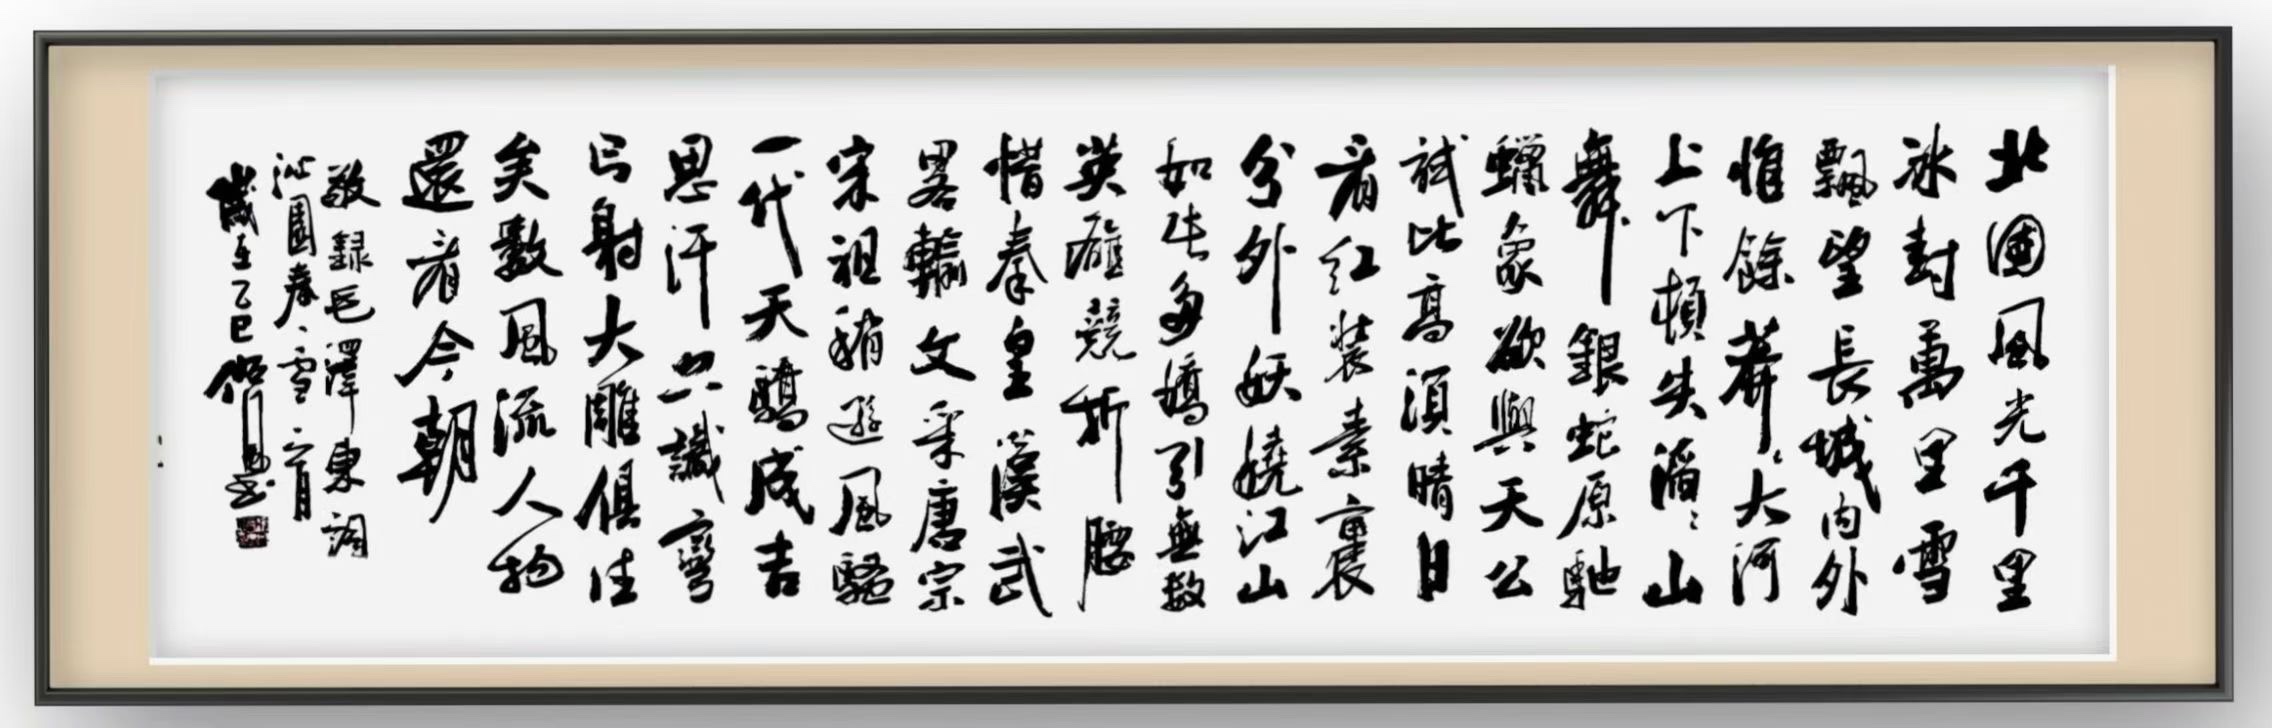 北國風光千里
冰封萬里雪
飄望長城内外
惟餘莽〻大河
上下頓失滔〻山
舞銀蛇原馳
蠟象欲與天公
試比高須晴日
看紅裝素裹
分外妖嬈江山
如此多嬌引無數
英雄競折腰
惜秦皇漢武
畧輸文采唐宗
宋祖稍遜風騷
一代天驕成吉
思汗只識彎
弓射大雕俱往
矣數風流人物
還看今朝
敬録毛澤東詞
沁園春、雪、
歲在乙巳 書